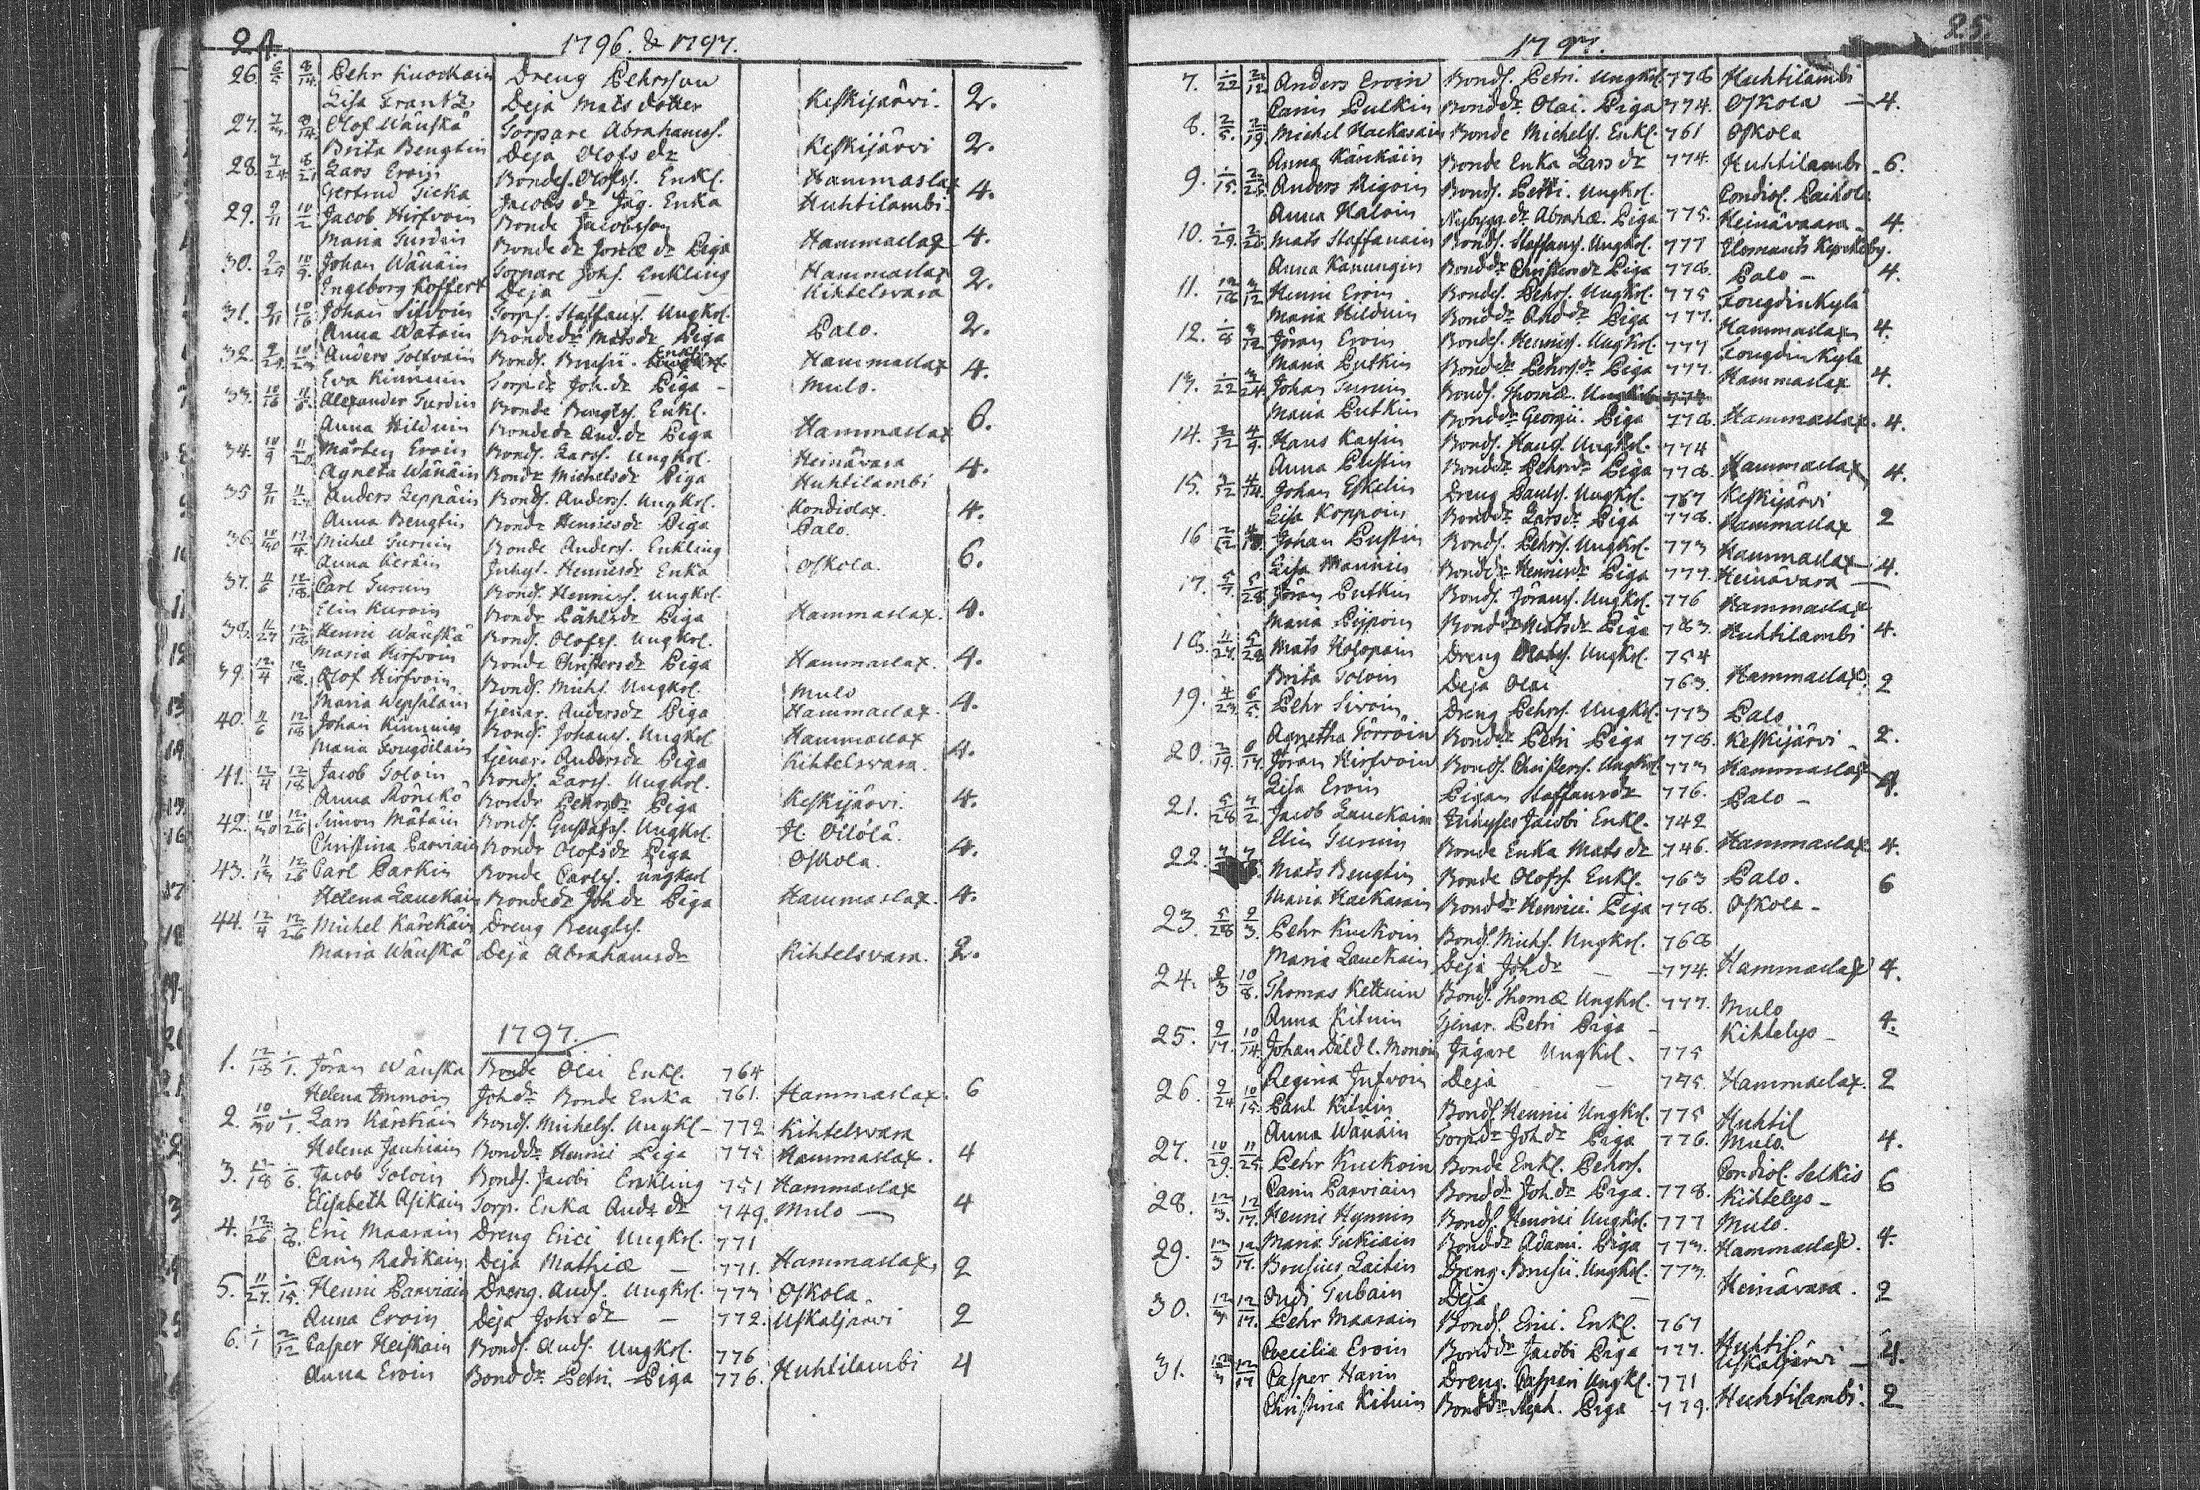 24. 1796. & 1797.
26. 6/5 8/14 Pehr Kuockain Dreng Pehrsson
Lisa Grantz Deja Mats dotter Keskijärvi. 2.
27. 8/14 Olof Wänskä Torpare Abrahamss.
Brita Bengtin Deja Olofs dr Keskijärvi 2.
28. 7/24 8/21 Lars Eroin Bondes. Olofss. Enkl. Hammaslax
Gertrud Ticka Jacobs dr Jäg. Enka Huhtilambi. 4.
29. 9/11 10/2 Jacob Hirfvoin Bonde Jacobsson
Maria Turdin Bonde dr Jonæ dr Piga Hammaslax 4.
30. 9/25 10/9. Johan Wänäin Torpare Johs. Enkling Hammaslax
Engeborg Koffert Deja Kihtelsvara 2.
31. 9/11 10/16 Johan Sifvoin Torps. Staffanss. Ungkrl.
Anna Watain Bondedr Matsdr Piga Palo. 2.
32. Anders Tolfvain Bonds. Brusii. Enkl. Hammaslax
Eva Kinnuin Torpdr Joh.dr Piga Mulo. 4.
33. 10/16 Alexander Turdin Bonde Bengtss. Enkl.
Anna Hilduin Bondedr And.dr Piga Hammaslax 6.
34. 10/9 11/20 Mårten Eroin Bonds. Larss. Ungkrl. Heinävara
Agneta Wänäin Bonde Michelsdr Piga Huhtilambi 4.
35 9/11 Anders Leppäin Bonds. Anderss. Ungkrl. Kondiolax.
Anna Bengtin Bonde Hennesdr Piga Palo. 4.
36. 10/30 Michel Turuin Bonde Anderss. Enkling
Anna Keräin Inhys. Hennesdr Enka Oskola. 6.
37. 11/6 12/18. Carl Turuin Bonds. Henness. Ungkrl.
Elin Kuroin Bonde Påhlsdr Piga Hammaslax. 4.
38. 11/27 12/18 Henni Wänskä Bonds. Olofss. Ungkrl.
Maria Hirfvoin Bonde Christersdr Piga Hammaslax. 4.
39. 12/4 12/18. Olof Hirfvoin Bonds. Michs. Ungkrl. Mulo
Maria Wepsäläin tjenar. Andersdr Piga Hammaslax. 4.
40. 11/6 12/18 Johan Kinnuin Bonds. Johanss. Ungkrl Hammaslax
Maria Fougdilain tjenar. Andersdr Piga Kihtelsvara. 4.
41. 12/4 12/18 Jacob Toloin Bonds. Larss. Ungkrl.
Anna Rönckö Bonde Pehrsdr Piga Keskijärvi. 4.
42. 10/30 12/26 Simon Mätäin Bonds. Gustafss. Ungkrl. H. Oilölä.
Christina Parviain Bonde Olofsdr Piga Oskola. 4.
43. 11/13 12/26 Carl Parkin Bonde Carlss. ungkarl
Helena Lauckain Bondedr Joh.dr Piga Hammaslax. 4.
44. 12/4 12/26 Michel Kärckäin Dreng Bengtss.
Maria Wänskä Deja Abrahamsdr Kihtelsvara. 2.
1797.
1. 12/18 1/1. Jöran Wänska Bonde Olai Enkl. 764
Helena Immoin Johdr Bonde Enka 761. Hammaslax. 6
2. 10/30 1/1. Lars Kärckäin Bonds. Michelss. Ungkl – 772 Kihtelsvara
Helena Jauhiain Bonddr Henrici Piga 775 Hammaslax. 4
3. 12/18 1/6. Jacob Toloin Bonds. Jacobi Enkling 751 Hammaslax
Elisabeth Asikain Torp. Enka Ands dr 749. Mulo — 4
4. 12/26 1/8. Eric Maarain Dreng Erici Ungkrl. 771
Carin Radikain Deja Mathiæ — 771. Hammaslax, 2
5. 11/27. 1/15. Henni Parviain Dreng. Ands. Ungkrl. 773 Oskola.
Anna Eroin Deja Johsdr — 772. Uskaljärvi 2
6. 1/1 2/12 Casper Heiskain Bonds. Ands. Ungkrl. 776
Anna Eroin Bonddr Petri. Piga 776. Huhtilambi 4
25.
1797.
7. 1/22 2/12 Anders Eroin Bonds. Petri. Ungkrl. 778 Huhtilambi
Carin Pulkin Bonddr Olai. Piga 774. Oskola — 4.
8. 2/5. 2/19. Michel Hackarain Bonde Michels. Enkl. 761 Oskola
Anna Kärckäin Bonde Enka Lars dr 774. Huhtilambi – 6.
9. 1/15. 2/25. Anders Rigoin Bonds. Petri. Ungkrl. Condiol. Paihola
Anna Haloin Nybygg.dr Abrahæ. Piga 775. Heinävaara – 4.
10. 1/29. 2/20. Mats Staffanain Bonds. Staffans. Ungkrl. 777 Ilomants Kyrckoby.
Anna Kanungin Bonddr Christersdr Piga 778. Palo – 4.
11. 3/12 Henni Eroin Bondes. Pehrs. Ungkrl. 775 Fougdinkylä
Maria Hilduin Bonddr Anddr Piga 777. Hammaslax 4.
12. 1/8 3/12 Jöran Eroin Bondes. Hennis. Ungkrl. 777 Fougdinkylä
Maria Putkin Bonddr Pehrsdr Piga 777. Hammaslax 4.
13. 1/22 3/24 Johan Turuin Bonds. Thomæ. Ungkrl. 777
Maria Putkin Bonddr Georgii. Piga 778. Hammaslax. 4.
14. 3/12 4/9. Hans Kassin Bonds. Hans. Ungkrl. 774
Anna Pustin Bonddr Pehrsdr Piga 778. Hammaslax 4.
15. 3/12 4/14. Johan Eskelin Dreng Pauls. Ungkrl. 767 Keskijärvi
Lisa Koppoin Bonddr Larsdr Piga 778. Hammaslax 2
16 Johan Pustin Bonds. Pehrs. Ungkrl. 773 Hammaslax
Lisa Mannin Bonddr Hennisdr Piga 777. Heinävara — 4.
17. 5/7. 5/28. Jöran Putkin Bonds. Jöranss. Ungkrl. 776 Hammaslax
Maria Piipoin Bonddr Matsdr Piga 783. Huhtilambi 4.
18. 5/28 Mats Holopain Dreng Matss. Ungkrl. 754
Brita Toloin Deja Olai 763. Hammaslax. 2
19. 4/23 6/5. Pehr Sivoin Dreng Pehrs. Ungkrl. 773 Palo
Agnetha Törröin Bonddr Petri Piga 778. Keskijärvi – 2.
20. 6/17. Jöran Hirfvoin Bonds. Christers. Ungkrl 773 Hammaslax
Lisa Eroin Pigan Staffansdr 776. Palo – 4.
21. 5/28 7/2. Jacob Lauckain Inhyses Jacobi Enkl. 742
Elin Turuin Bonde Enka Matsdr 746. Hammaslax 4.
22. Mats Bengtin Bonde Olofss. Enkl. 763 Palo. 6
Maria Hackarain Bonddr Henrici. Piga 778. Oskola –
23. 5/28 9/3. Pehr Kuckoin Bonds. Michs. Ungkrl. 768
Maria Lauckain Deja Johdr — 774. Hammaslax 4.
24. 9/3 10/8. Thomas Kettuin Bonds. Thomæ Ungkrl. 777. Mulo
Anna Kituin Tjenar. Petri Piga – Kihtelys – 4.
25. 9/17. 10/14. Johan Däld l. Monoin Jägare Ungkrl. 775
Regina Jufvoin Deja — 775. Hammaslax. 2
26. 9/24 10/15. Paul Kituin Bonds. Henrici Ungkrl. 775 Huhtil
Anna Wänäin Torpdr Joh.dr Piga 776. Mulo. 4.
27. 10/29. 11/25. Pehr Kuckoin Bonde Enkl. Pehrss. Condiol. Selkis
Carin Parviain Bonddr Joh.dr Piga. 778. Kihtelys – 6
28. 12/3. 12/17. Henni Hynnin Bonds. Henrici Ungkrl. 777 Mulo.
Maria Tukiain Bonddr Adami. Piga 773. Hammaslax. 4.
29. 12/3 12/17. Brusius Laitin Dreng. Brusii. Ungkrl. 773.
Audi Tubain Deja — Heinävara. 2
30. 12/3 12/17. Pehr Maarain Bonds. Erici. Enkl. 767
Cæcilia Eroin Bonddr Jacobi Piga 777. Huhtil. Uskaljärvi — 4.
31. 12/3 12/17 Casper Harin Dreng. Caspari Ungkl. 771
Christina Kituin Bonddr Steph. Piga 779. Huhtilambi. 2